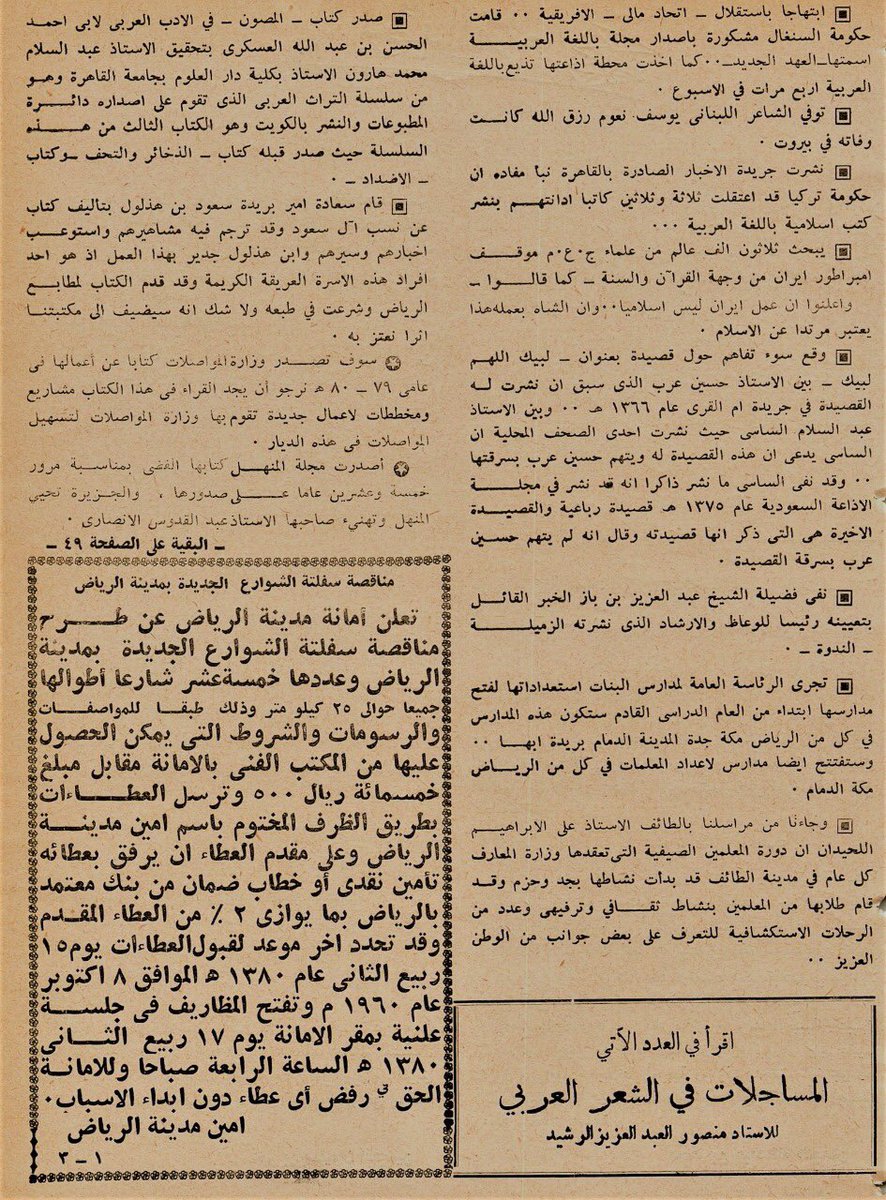 ▣ ابتهاجا باستقلال ــ اتحاد مالى ــ الافريقية ٠٠ قامت
حكومة السنغال مشكورة باصدار مجلة باللغة العربيــــة
اسمتها ــ العهد الجديد ــ ٠٠ كما اخذت محطة اذاعتها تذيع باللغة
العربية اربع مرات في الاسبوع ٠
▣ توفي الشاعر اللبنانى يوسف نعوم رزق الله كانــت
وفاته في بيروت ٠
▣ نشرت جريدة الاخبار الصادرة بالقاهرة نبأ مفاده ان
حكومة تركيا قد اعتقلت ثلاثة وثلاثين كاتبا ادانتهــم بنشر
كتب اسلامية باللغة العربية ٠٠٠
▣ يبحث ثلاثون الف عالم من علماء ج٠ع٠م موقــف
امبراطور ايران من وجهة القرآن والسنة ــ كما قالـــوا ــ
واعلنوا ان عمل ايران ليس اسلاميا ٠٠ وان الشاه بعمله هذا
يعتبر مرتدا عن الاسلام ٠
▣ وقع سوء تفاهم حول قصيدة بعنوان ــ لبيك اللهم
لبيك ــ بين الاستاذ حسين عرب الذى سبق ان نشرت لــه
القصيدة في جريدة ام القرى عام ١٣٦٦ هـ ٠٠ وبين الاستاذ
عبد السلام الساسى حيث نشرت احدى الصحف المحلية ان
الساسى يدعى ان هذه القصيدة له ويتهم حسين عرب بسرقتها
٠٠ وقد نفى الساسى ما نشر ذاكرا انه قد نشر في مجلـــة
الاذاعة السعودية عام ١٣٧٥ هـ قصيدة رباعية والقصيــدة
الاخيرة هى التى ذكر انها قصيدته وقال انه لم يتهم حسـين
عرب بسرقة القصيدة ٠
▣ نفى فضيلة الشيخ عبد العزيز بن باز الخبر القائــل
بتعيينه رئيسا للوعاظ والارشاد الذى نشرته الزميلـــة
ــ الندوة ــ ٠
▣ تجرى الرئاسة العامة لمدارس البنات استعداداتها لفتح
مدارسها ابتداء من العام الدراسى القادم ستكون هذه المدارس
في كل من الرياض مكة جدة المدينة الدمام بريدة ابهــا ٠٠
وستفتتح ايضا مدارس لاعداد المعلمات في كل من الريــاض
مكة الدمام ٠
▣ وجاءنا من مراسلنا بالطائف الاستاذ على الابراهيــم
اللحيدان ان دورة المعلمين الصيفية التى تعقدها وزارة المعارف
كل عام في مدينة الطائف قد بدأت نشاطها بجد وحزم وقــد
قام طلابها من المعلمين بنشاط ثقــافي وترفيهى وعدد من
الرحلات الاستكشافية للتعرف على بعض جوانب من الوطن
العزيز ٠٠
اقرأ في العدد الآتي
المساجلات في الشعر العربي
للاستاذ منصور العبد العزيز الرشيد
▣ صدر كتاب ــ المصون ــ في الادب العربى لابى احمـد
الحسن بن عبد الله العسكرى بتحقيق الاستاذ عبد السلام
محمد هارون الاستاذ بكلية دار العلوم بجامعة القاهرة وهـو
من سلسلة التراث العربى الذى تقوم على اصداره دائـــرة
المطبوعات والنشر بالكويت وهو الكتاب الثالث من هـــذه
السلسلة حيث صدر قبله كتاب ــ الذخائر والتحف ــ وكتاب
ــ الاضداد ــ ٠
▣ قام سعادة امير بريدة سعود بن هذلول بتاليف كتاب
عن نسب آل سعود وقد ترجم فيه مشاهيرهم واستوعــب
اخبارهم وسيرهم وابن هذلول جدير بهذا العمل اذ هو احد
افراد هذه الاسرة العريقة الكريمة وقد قدم الكتاب لمطابـع
الرياض وشرعت في طبعه ولا شك انه سيضيف الى مكتبتنـا
اثرا نعتز به ٠
سوف تصـــدر وزارة المواصلات كتابا عن أعمالها فى
عامى ٧٩ ــ ٨٠ هـ نرجو أن يجد القراء فى هذا الكتاب مشاريع
ومخططات لاعمال جديدة تقوم بها وزارة المواصلات لتسهيل
المواصلات فى هذه الديار ٠
أصدرت مجلة المنهل كتابها الفضى بمناسـبة مرور
خمسة وعشرين عاما عـــلى صدورها ، والجزيرة تحيي
المنهل وتهنىء صاحبها الاستاذ عبد القدوس الانصارى ٠
ــ البقية على الصفحة ٤٩ ــ
مناقصة سفلتة الشوارع الجديدة بمدينة الرياض
تعلن أمانة مدينة الرياض عن طـــرح
مناقصة سفلتة الشوارع الجديدة بمدينة
الرياض وعددها خمسة عشر شارعا أطوالها
جميعا حوالى ٢٥ كيلو متر وذلك طبقــا للمواصفــات
والرسومات والشروط التى يمكن الحصول
عليها من المكتب الفنى بالامانة مقابل مبلغ
خمسمائة ريال ٥٠٠ وترسل العطـــاءات
بطريق الظرف المختوم باسم امين مدينــة
الرياض وعلى مقدم العطاء ان يرفق بعطائه
تأمين نقدى أو خطاب ضمان من بنك معتمد
بالرياض بما يوازى ٢ ٪ من العطاء المقـدم
وقد تحدد اخر موعد لقبول العطاءات يوم ١٥
ربيع الثانى عام ١٣٨٠ هـ الموافق ٨ اكتوبر
عام ١٩٦٠ م وتفتح المظاريف فى جلســة
علنية بمقر الامانة يوم ١٧ ربيع الثــانى
١٣٨٠ هـ الساعة الرابعة صباحا وللامانــة
الحق في رفض أى عطاء دون ابداء الاسباب ٠
امين مدينة الرياض
١ ــ ٣